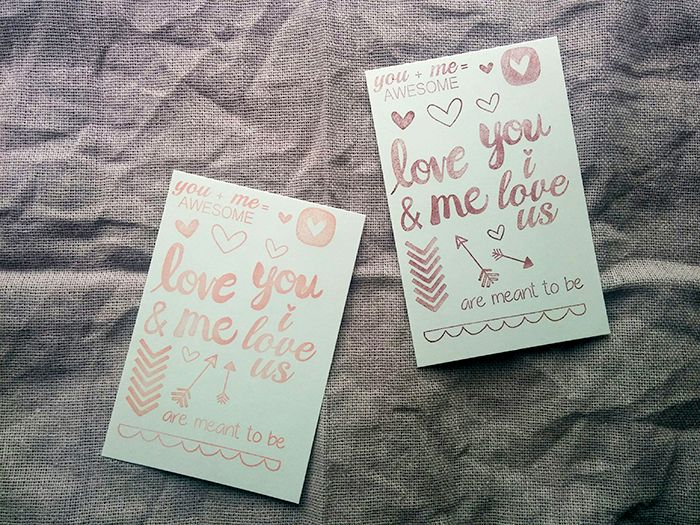 you + me =
AWESOME
love you
& me
i
love
us
are meant to be
you + me =
AWESOME
love you
& me
i
love
us
are meant to be